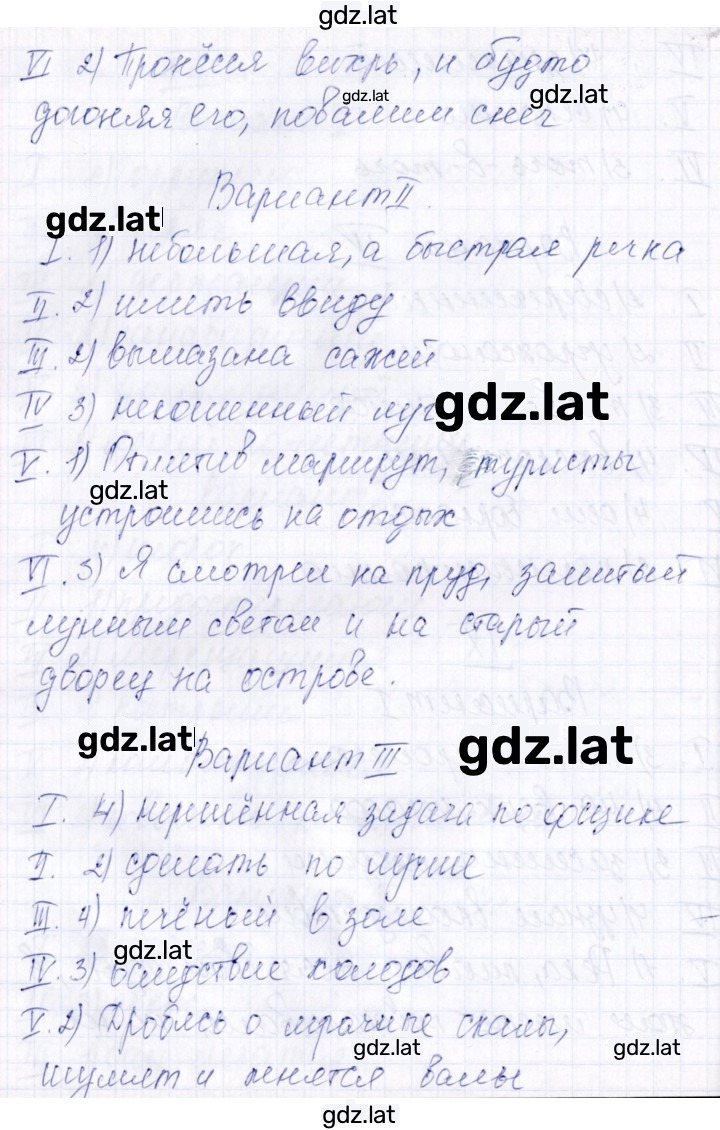 gdz.lat
VI 2) Пронёсся вихрь, и будто
gdz.lat
gdz.lat
догоняя его, повалил снег
Вариант II.
gdz.lat
I. 1) небольшая, а быстрая речка
II. 2) иметь ввиду
III. 2) вымазана сажей
IV 3) некошенный луг
gdz.lat
V. 1) Отметив маршрут, туристы
gdz.lat
устроились на отдых
VI. 3) Я смотрел на пруд, залитый
лунным светом и на старый
дворец на острове.
gdz.lat
gdz.lat
Вариант III
I. 4) нерешённая задача по физике
II. 2) сделать по лучше
III. 4) печёный в золе
gdz.lat
IV. 3) вследствие холодов
V. 2) Дробясь о мрачные скалы,
gdz.lat
gdz.lat
шумят и пенятся валы
gdz.lat